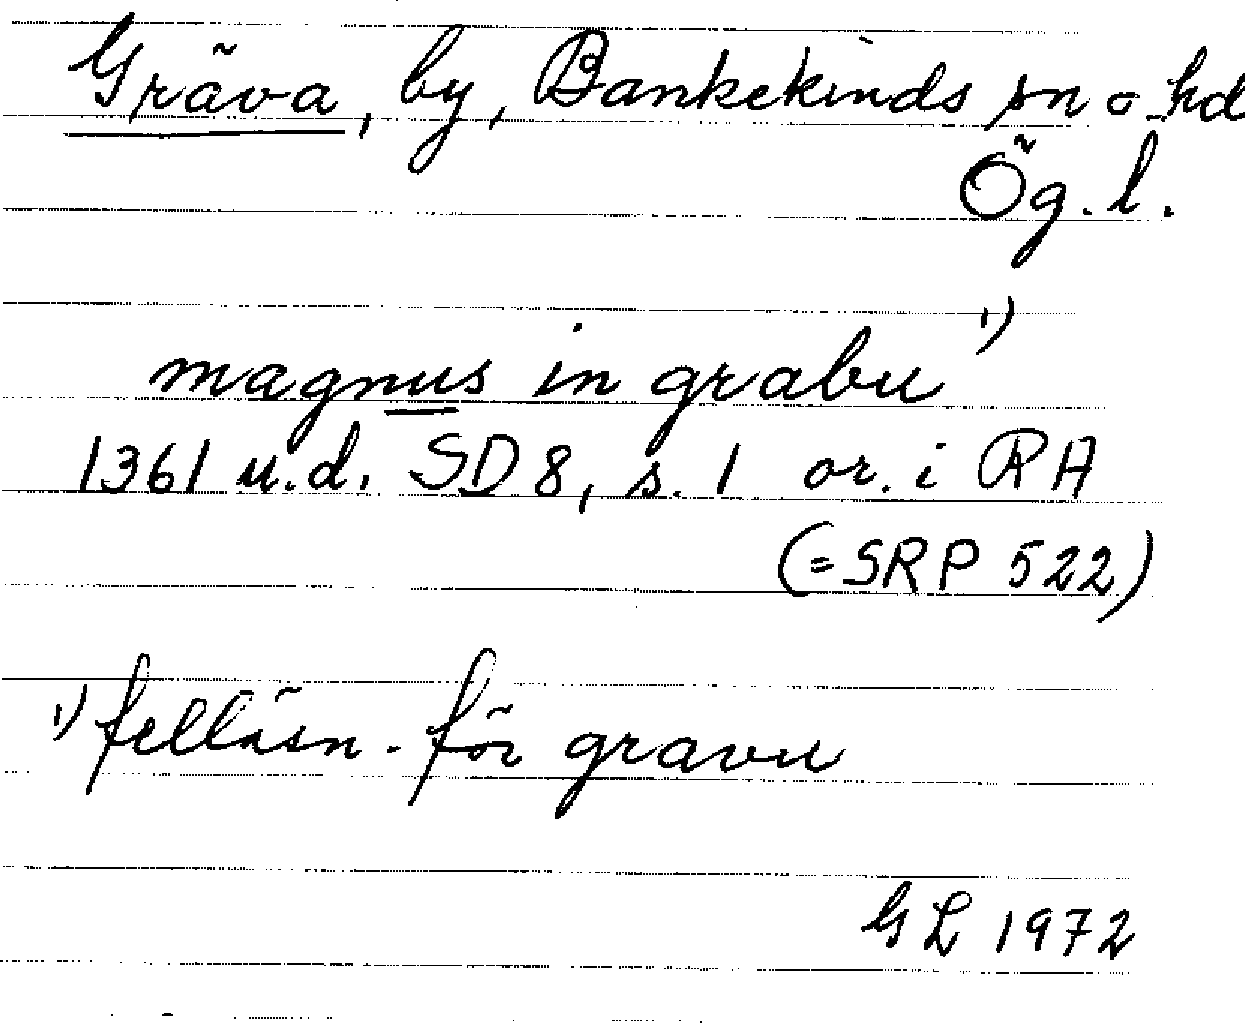 Gräva, by, Bankekinds sn o hd
Ög. l.
magnus in grabu 1)
1361 u.d. SD 8, s. 1 or. i RA
(= SRP 522)
1) felläsn. för gravu
GL 1972